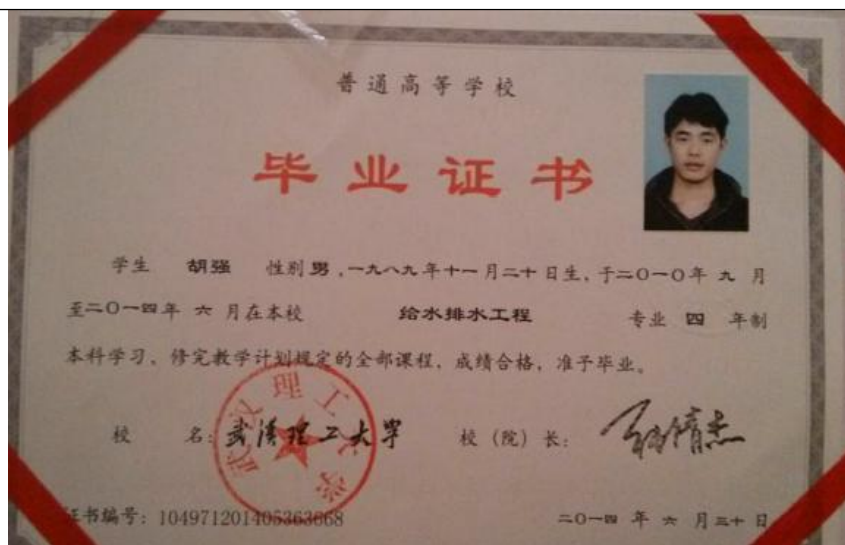 普通高等学校
毕业证书
学生 胡强 性别 男，一九八九年十一月二十日生，于二〇一〇年 九 月
至二〇一四年 六 月在本校 给水排水工程 专业 四 年制
本科学习，修完教学计划规定的全部课程，成绩合格，准予毕业。
校 名：武汉理工大学 校（院）长：
武汉理工大学
证书编号：104971201405363668 二〇一四 年 六 月三十 日